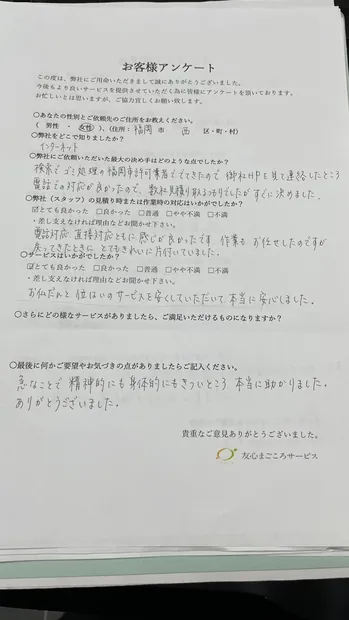 お客様アンケート
この度は、弊社にご用命いただきまして誠にありがとうございました。
今後もより良いサービスを提供させていただく為に皆様にアンケートを頂いております。
お忙しいとは思いますが、ご協力宜しくお願い致します。
○あなたの性別とご依頼先のご住所をお教えください。
（ 男性 ・ 女性 ）、（住所： 福岡 市 西 区・町・村）
○弊社をどこで知りましたか？
インターネット
○弊社にご依頼いただいた最大の決め手はどのような点でしたか？
検索でゴミ処理の福岡市許可業者ででてきたので 御社HPを見て連絡したところ
電話での対応が良かったので、数社見積り取るつもりでしたがすぐに決めました。
○弊社（スタッフ）の見積り時または作業時の対応はいかがでしたか？
☑とても良かった □良かった □普通 □やや不満 □不満
・差し支えなければ理由などお聞かせ下さい。
電話対応 直接対応ともに感じが良かったです 作業も お任せしたのですが
戻ってきたときに とてもきれいに片付いていました。
○サービスはいかがでしたか？
☑とても良かった □良かった □普通 □やや不満 □不満
・差し支えなければ理由などお聞かせ下さい。
お仏だんと 位はいのサービスを安くしていただいて本当に安心しました。
○さらにどの様なサービスがありましたら、ご満足いただけるものになりますか？
○最後に何かご要望やお気づきの点がありましたらご記入ください。
急なことで 精神的にも 身体的にもきついところ 本当に助かりました。
ありがとうございました。
貴重なご意見ありがとうございました。
友心まごころサービス